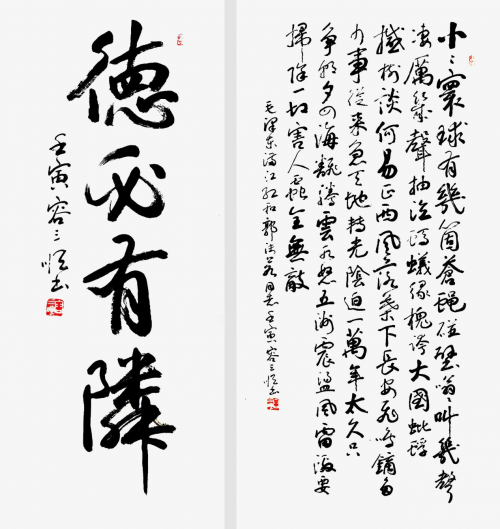 德必有隣
壬寅容三书
小〻寰球有幾箇蒼蠅碰壁嗡〻叫幾聲
凄厲幾聲抽泣螞蟻緣槐誇大國蚍蜉
撼樹談何易正西風落葉下長安飛鳴鏑多
少事從来急天地转光陰迫一萬年太久只
争朝夕四海翻騰雲水怒五洲震盪風雷激要
掃除一切害人蟲全無敵
毛澤东满江红和郭沫若同志壬寅容三书